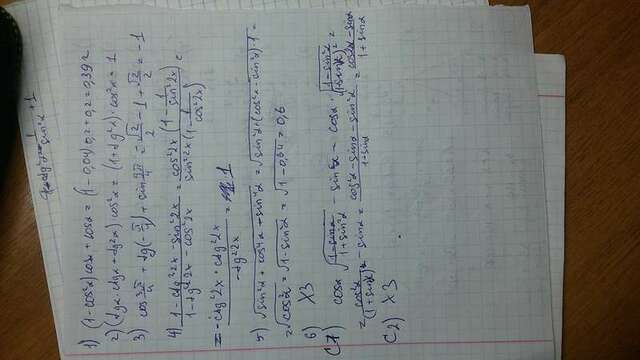 1) (1-cos²α)cosα + cosα = (1-0,04)·0,2+0,2=0,392
2) (tgα·ctgα+tg²α) cos²α = (1+tg²α)·cos²α = 1
3) cos 3π/4 + tg(-π/4) + sin 9π/4 = -√2/2 - 1 + √2/2 = -1
4) (1-ctg²2x-sin²2x)/(1-tg²2x-cos²2x) = cos²2x(1-1/sin²2x)/sin²2x(1-1/cos²2x) =
= -ctg²2x·ctg²2x/-tg²2x = 1
5) √sin²α+cos⁴α-sin⁴α = √sin²α+(cos²α-sin²α)·1 =
=√cos²α=√1-sin²α=√1-0,64=0,6
6) ХЗ
C7) cosα √(1-sinα)/(1+sin²α) - sin²α - cosα·√(1-sin²α)/(1+sinα)² =
= cos²α/(1+sinα) - sinα = (cos²α-sinα-sin²α)/(1+sinα) = (cos2α-sinα)/(1+sinα)
C2) ХЗ